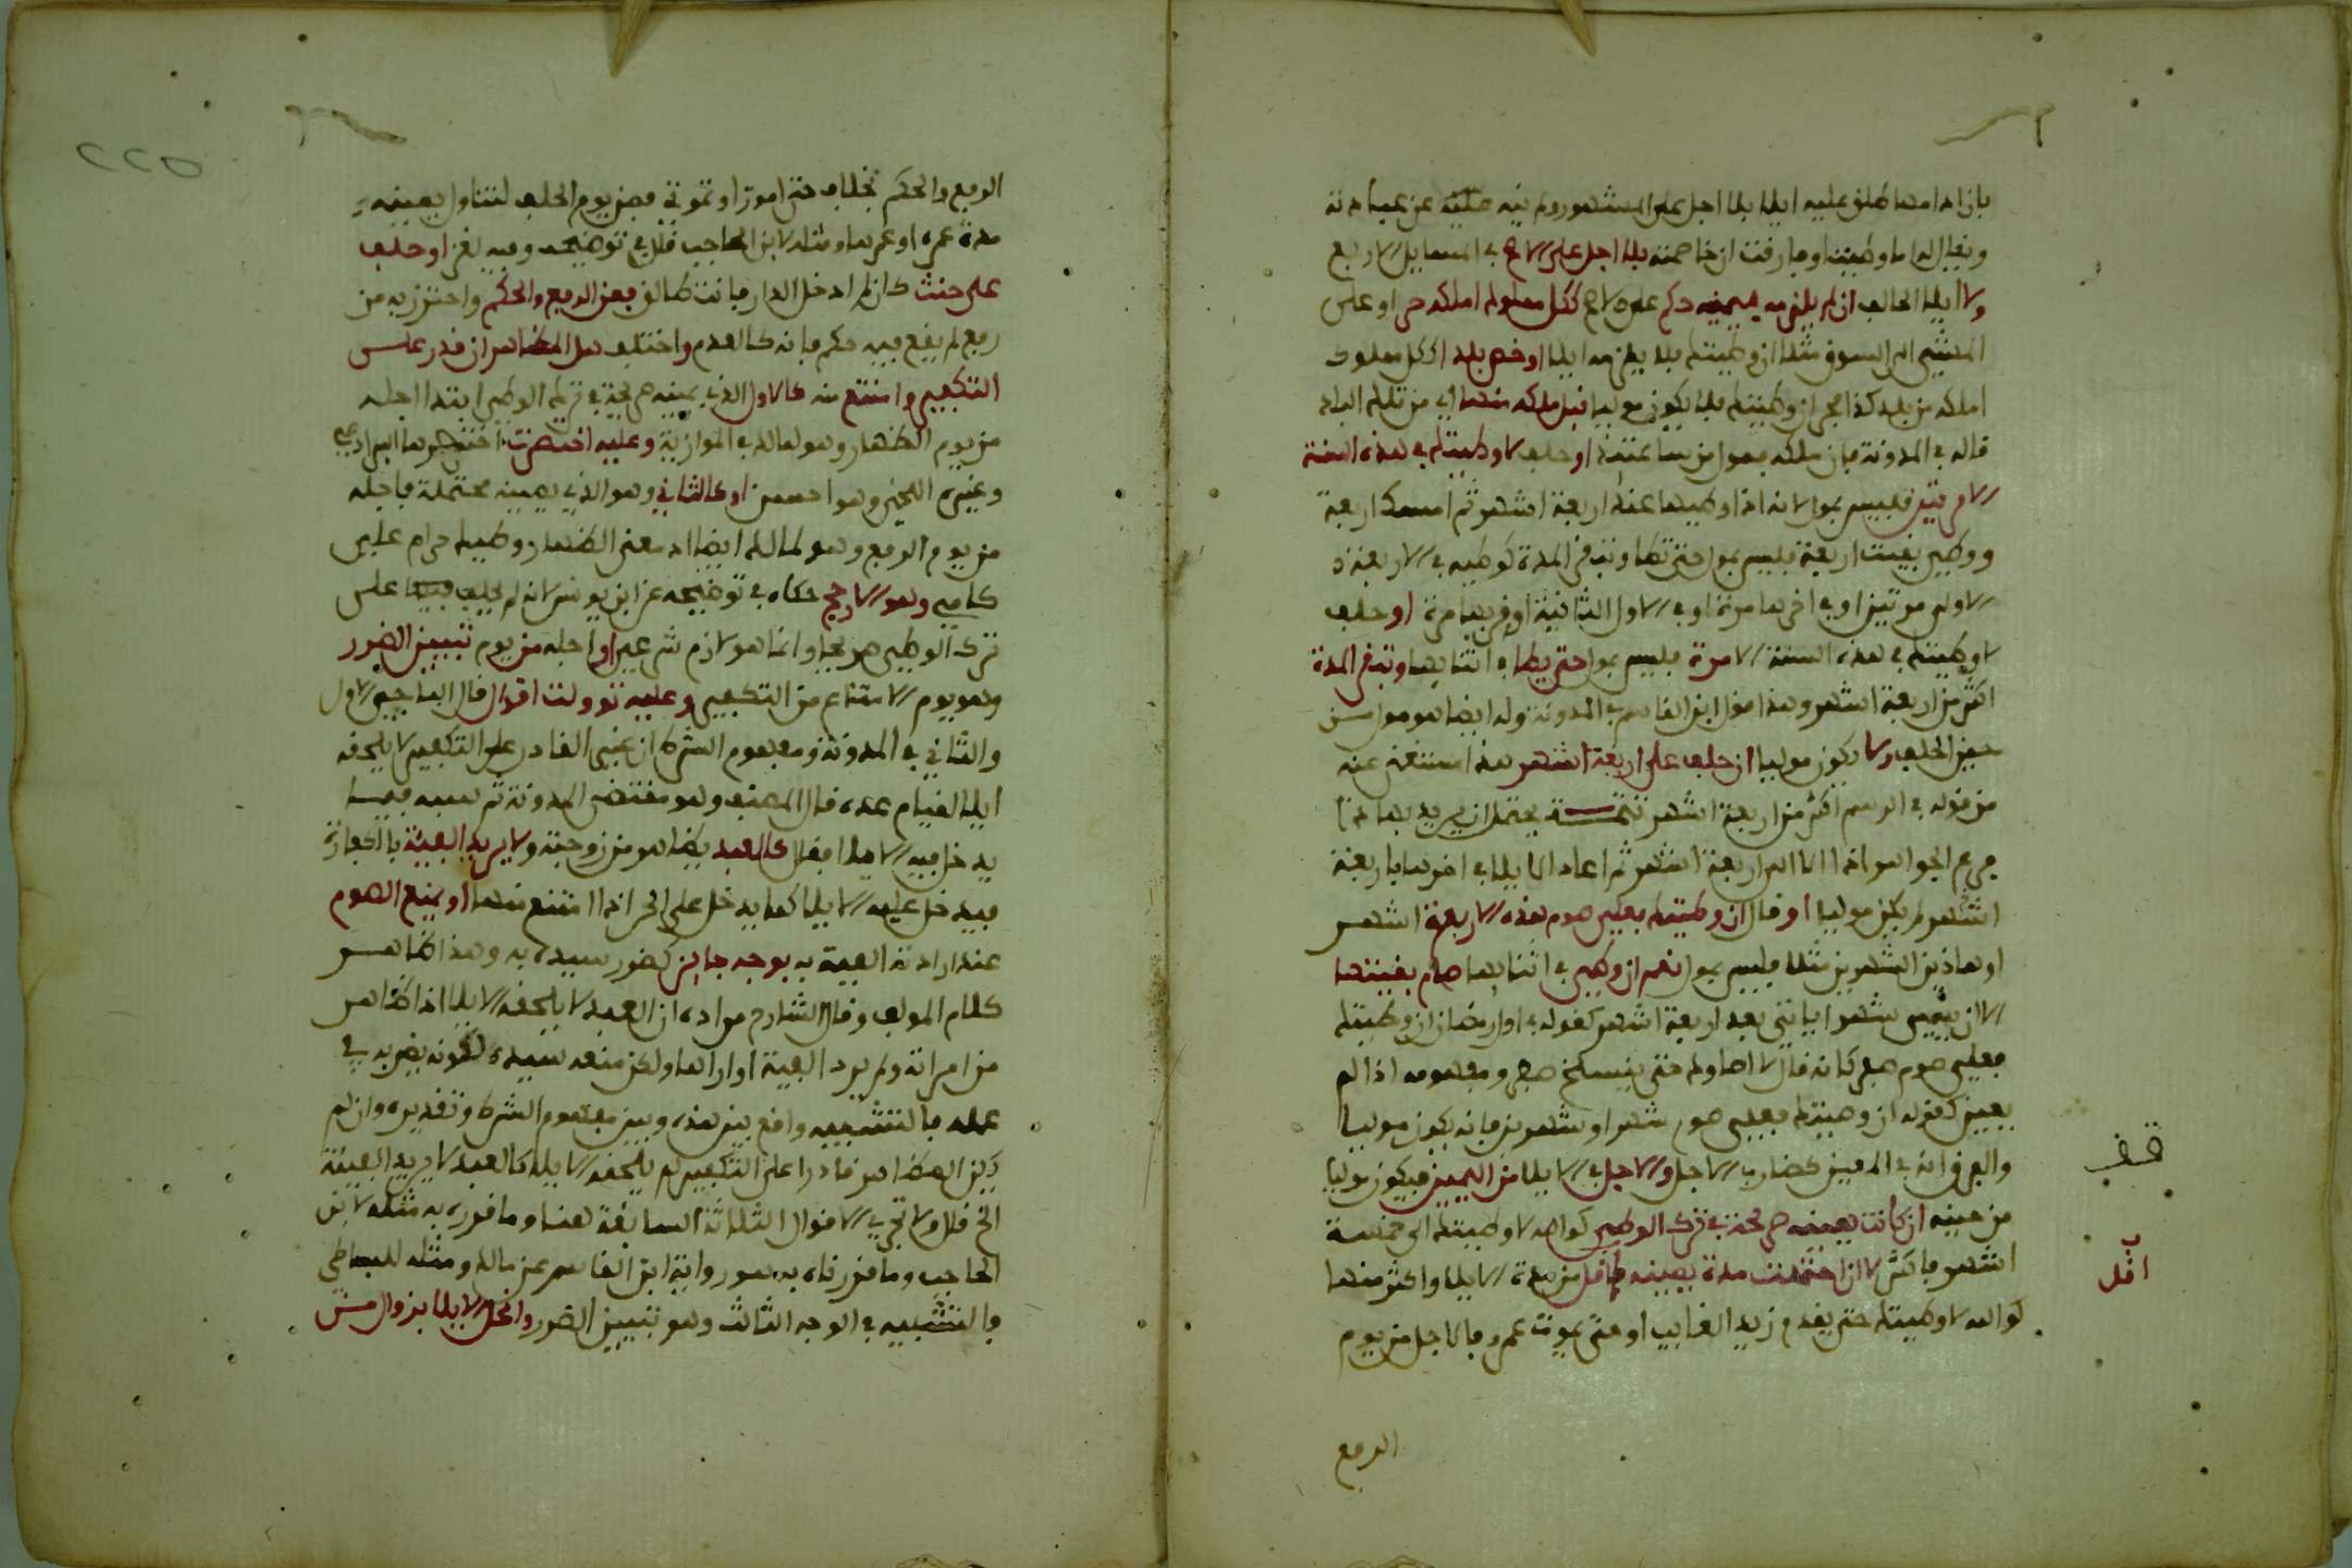 فان ادامها طلق عليه ايلا بلا اجل على المشهور ولم نيه عن عبادته
ويقال له اما وطيت او فارقت ان خاصمته بلا اجل على الاصح في المسايل الاربع
ولا ايلا لحالف ان لم يلزمه بيمينه حكم على الاصح ككل مملوك املكه حر او على
المشي الى السوق مثلا ان وطيتك فلا يلزمه ايلا او خص بلدا ككل مملوك
املكه من بلد كذا حر ان وطيتك فلا يكون موليا قبل ملكه منها اي من تلك البلد
قاله في المدونة فان ملكه فمول من ساعتئذ او حلف لا وطيتك في هذه السنة
الا مرتين فليس بمول لانه اذا وطيها عند اربعة اشهر ثم امسك اربعة
ووطي بقيت اربعة فليس بمول حتى تطا وتبقى المدة كوطيه في الاربعة
الاولى مرتين او في اخرها مرة او في الاول الثانية او قربها مرة او حلف
لا وطيتك في هذه السنة الا مرة فليس بمول حتى يطا في اثنايها وتبقى المدة
اكثر من اربعة اشهر وهذا قول ابن القاسم في المدونة وله ايضا هو مول من
حين الحلف ولا يكون موليا ان حلف على اربعة اشهر هذا استغنى عنه
من قوله في الرسم اكثر من اربعة اشهر تتمة يحتمل ان يريد بها ما
في الجواهر اذا الى اربعة اشهر ثم اعاد الايلا في اخرها باربعة
اشهر لم يكن موليا او قال ان وطيتك فعلي صوم هذه الاربعة اشهر
او هاذين الشهرين مثلا فليس بمول نعم ان وطي في اثنايها صام بقيتها
الا ان يعين شهرا ياتي بعد اربعة اشهر كقوله في اول رمضان ان وطيتك
فعلي صوم صفر كانه قال لا اطاوك حتى ينسلخ صفر ومفهومه اذا لم
يعين كقوله ان وطيتك فعلي صوم شهر او شهرين فانه يكون موليا
والفرق انه في المعين كضارب الاجل والاجل في الايلا من اليمين فيكون موليا
من حينه ان كانت يمينه صريحة في ترك الوطي كوالله لا وطيتك اي خمسة
اشهر فاكثر لا ان احتملت مدة يمينه اقل من مدة الايلا واكثر منها
كوالله لا وطيتك حتى يقدم زيد الغايب او حتى يموت عمرو فالاجل من يوم
الرفع
قف
اقل
الرفع والحكم بخلاف حتى اموت او تموتي فمن يوم الحلف لتناول يمينه
مدة عمره او عمرها ومثله لابن الحاجب قال في توضيحه وفيه نظر او حلف
على حنث كان لم ادخل الدار فانت طالق فمن الرفع والحكم واحترز به من
رفع لم يقع فيه حكم فانه كالعدم واختلف هل المظاهر ان قدر على
التكفير وامتنع منه كالاول الذي يمينه صريحة في ترك الوطي ابتدا اجله
من يوم الظهار وهو لمالك في الموازية وعليه اختصرت اختصرها البرادعي
وغيره اللخمي وهو احسن او كالثاني وهو الذي يمينه محتملة فاجله
من يوم الرفع وهو لمالك ايضا اذ معنى الظهار وطيك حرام علي
كامي وهو الارجح حكاه في توضيحه عن ابن يونس لانه لم يحلف فيه على
ترك الوطي صريحا وانما هو لازم شرعي او اجله من يوم تبيين الضرر
وهو يوم الامتناع من التكفير وعليه توولت اقوال قال الباجي الاول
والثاني في المدونة ومفهوم الشرط ان غير القادر على التكفير لا يلحقه
ايلا لقيام عذره قال المصنف وهو مقتضى المدونة ثم شبه فيمن
يدخل فيه الايلا فقال كالعبد يظاهر من زوجته ولا يريد الفيئة بالكفارة
فيدخل عليه الايلا كما يدخل على الحر اذا امتنع منها او يمنع الصوم
عند ارادته الفيئة به بوجه جايز كضرر سيده به وهذا ظاهر
كلام المولف وقال الشارح مراده ان العبد لا يلحقه الايلا اذا ظاهر
من امراته ولم يرد الفيئة او ارادها ولكن منعه سيده لكونه يضر به في
عمله فالتشبيه واقع بين هذه وبين مفهوم الشرط وتقديره وان لم
يكن المظاهر قادرا على التكفير لم يلحقه الايلا كالعبد لا يريد الفيئة
الخ قال ولا تجري الاقوال الثلاثة السابقة هنا وما قرره به مثله لابن
الحاجب وما قررناه به هو رواية ابن القاسم عن مالك ومثله للبساطي
فالتشبيه في الوجه الثالث وهو تبيين الضرر وانحل الايلا بزوال ملك